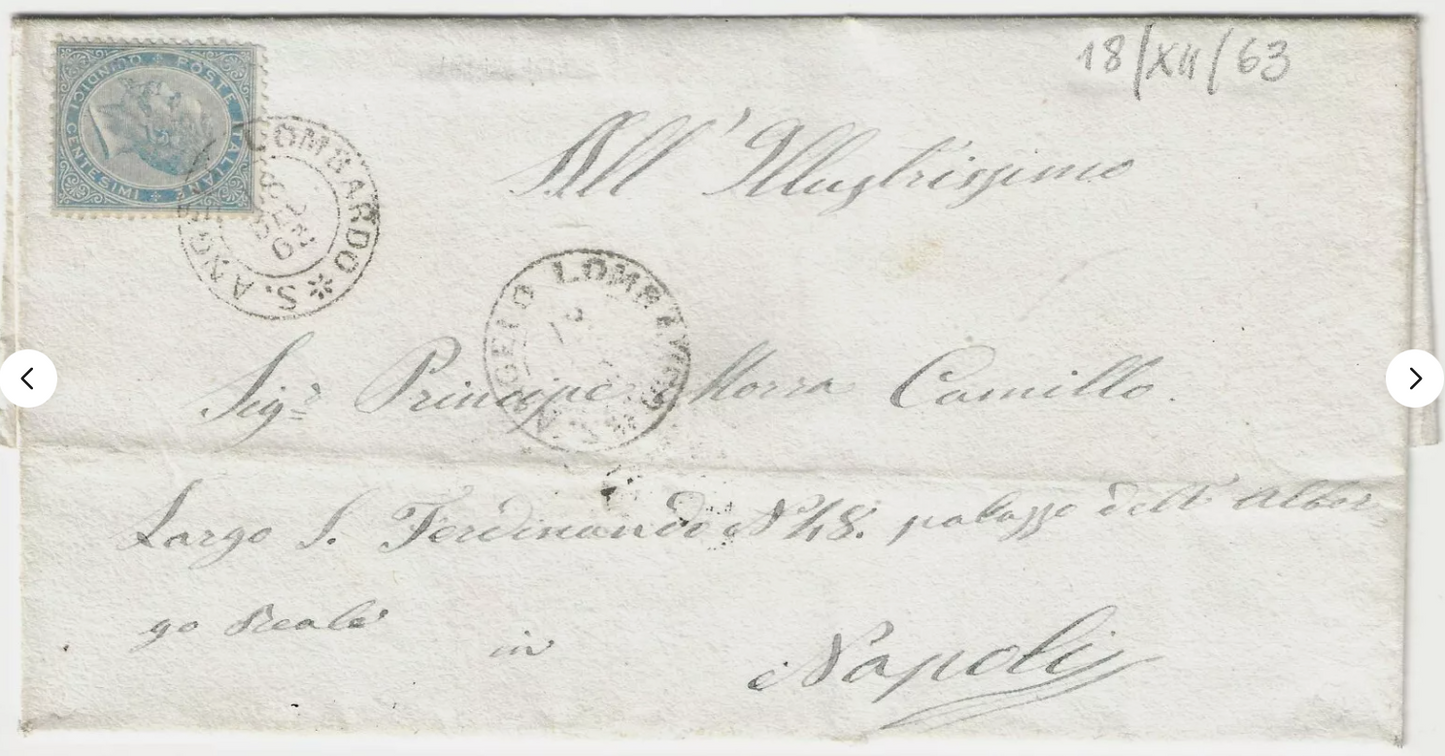 18/XII/63
POSTE ITALIANE
CENTESIMI QUINDICI
LOMBARDO * S. ANGELO
18
DIC
63
All' Illustrissimo
S. ANGELO LOMBARDO *
Sigr. Principe Morra Camillo.
Largo S. Ferdinando N° 48. palazzo dell' Alber
go Reale
in Napoli